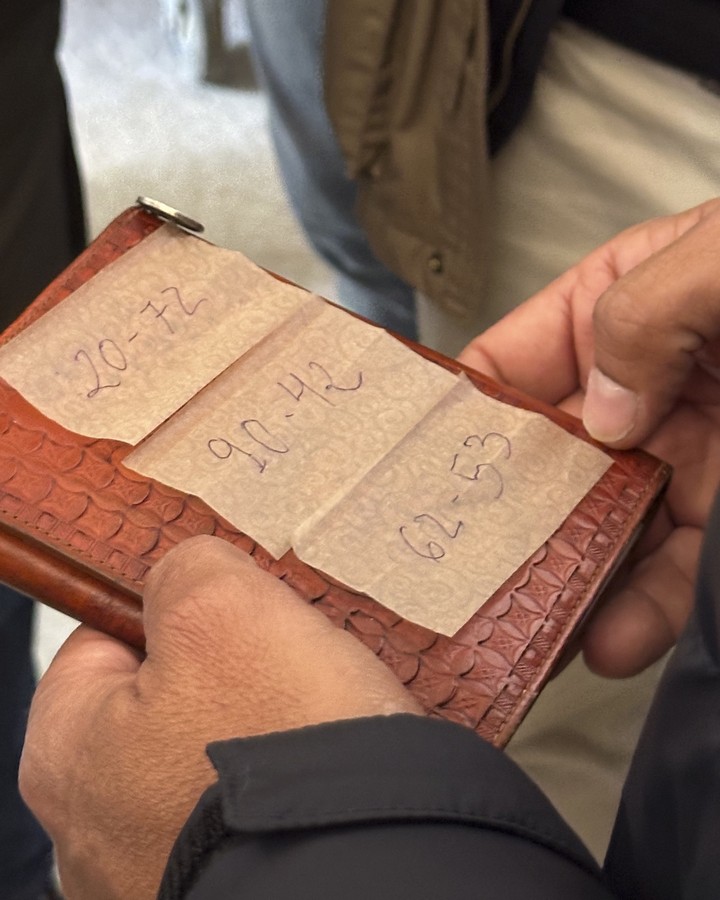 20-72
90-42
62-53